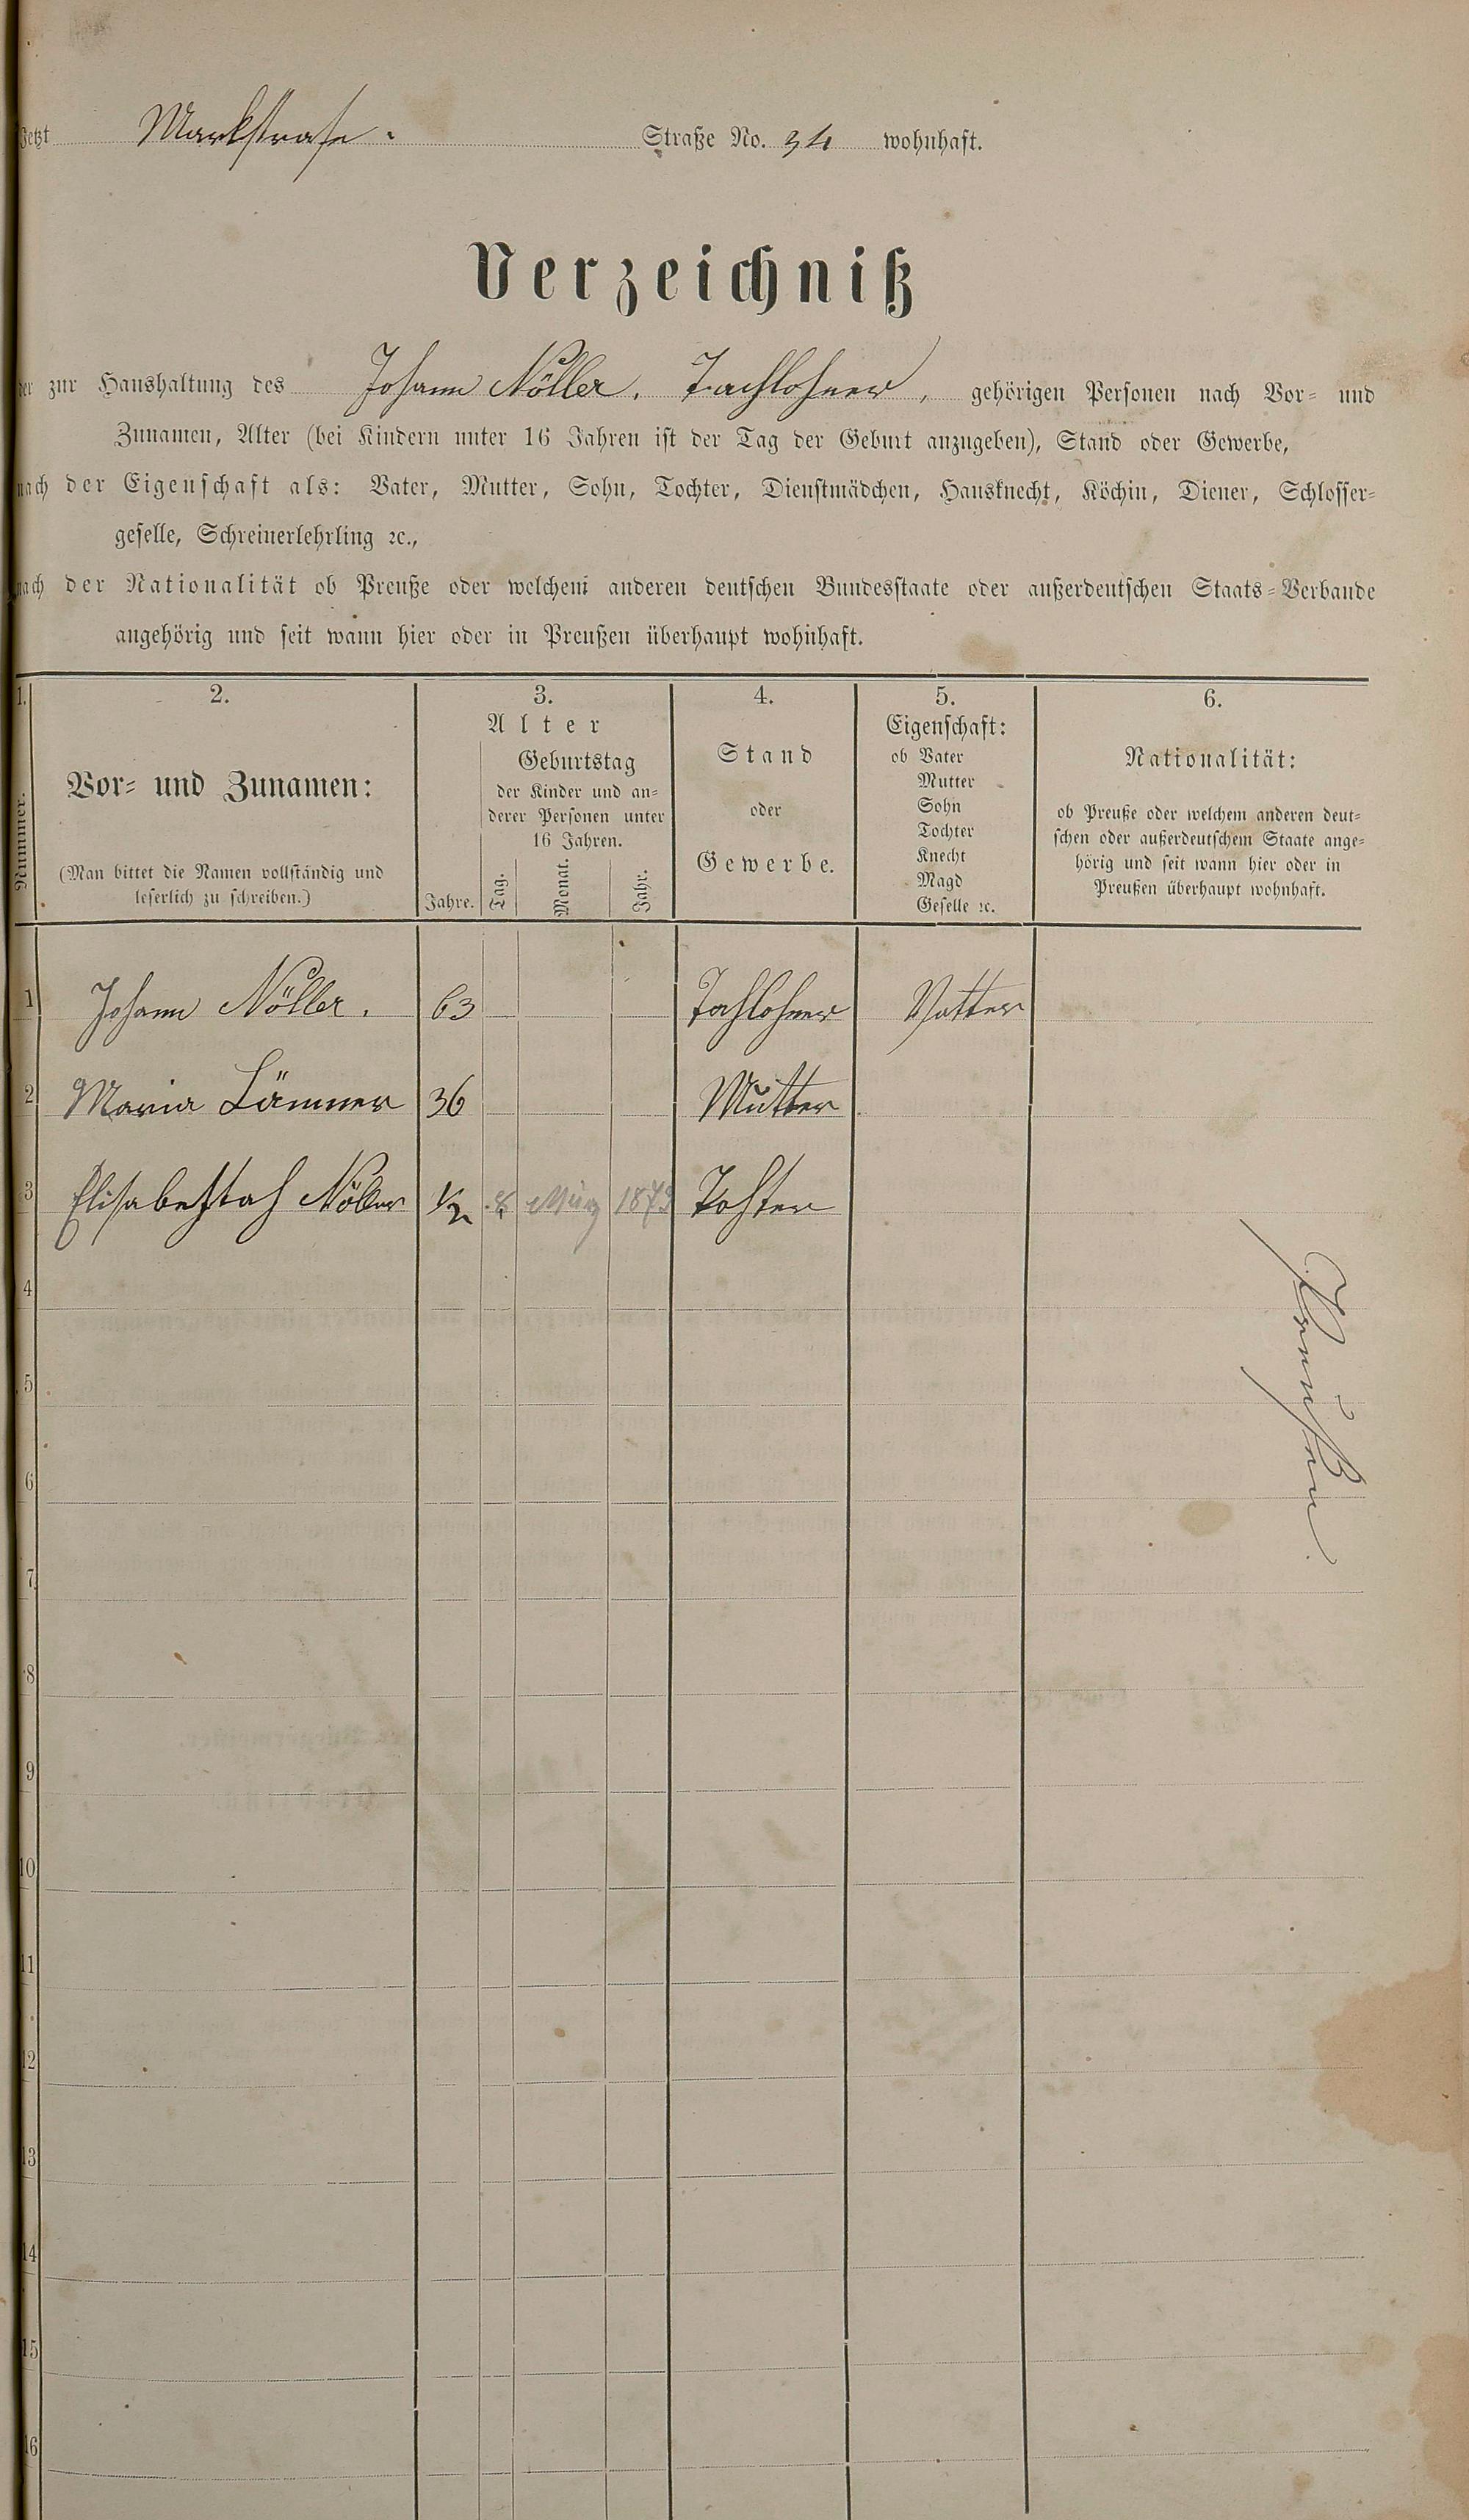 Jetzt Markstrase. Straße No. 34 wohnhaft.
Verzeichniß
der zur Haushaltung des Johann Nöller, Tachlohner, gehörigen Personen nach Vor- und
Zunamen, Alter (bei Kindern unter 16 Jahren ist der Tag der Geburt anzugeben), Stand oder Gewerbe,
nach der Eigenschaft als: Vater, Mutter, Sohn, Tochter, Dienstmädchen, Hausknecht, Köchin, Diener, Schlosser-
geselle, Schreinerlehrling ꝛc.,
nach der Nationalität ob Preuße oder welchem anderen deutschen Bundesstaate oder außerdeutschen Staats-Verbande
angehörig und seit wann hier oder in Preußen überhaupt wohnhaft.
1. 2. 3. 4. 5. 6.
Nummer.
Vor- und Zunamen:
(Man bittet die Namen vollständig und
leserlich zu schreiben.)
Alter
Jahre.
Geburtstag
der Kinder und an-
derer Personen unter
16 Jahren.
Tag. Monat. Jahr.
Stand
oder
Gewerbe.
Eigenschaft:
ob Vater
Mutter
Sohn
Tochter
Knecht
Magd
Geselle ꝛc.
Nationalität:
ob Preuße oder welchem anderen deut-
schen oder außerdeutschem Staate ange-
hörig und seit wann hier oder in
Preußen überhaupt wohnhaft.
1 Johann Nöller. 63 Tachlohner Vatter
2 Maria Lämmer 36 Mutter
3 Elisabehtah Nöller ½ 8 März 1873 Tohter
Preußen
4
5
6
7
8
9
10
11
12
13
14
15
16